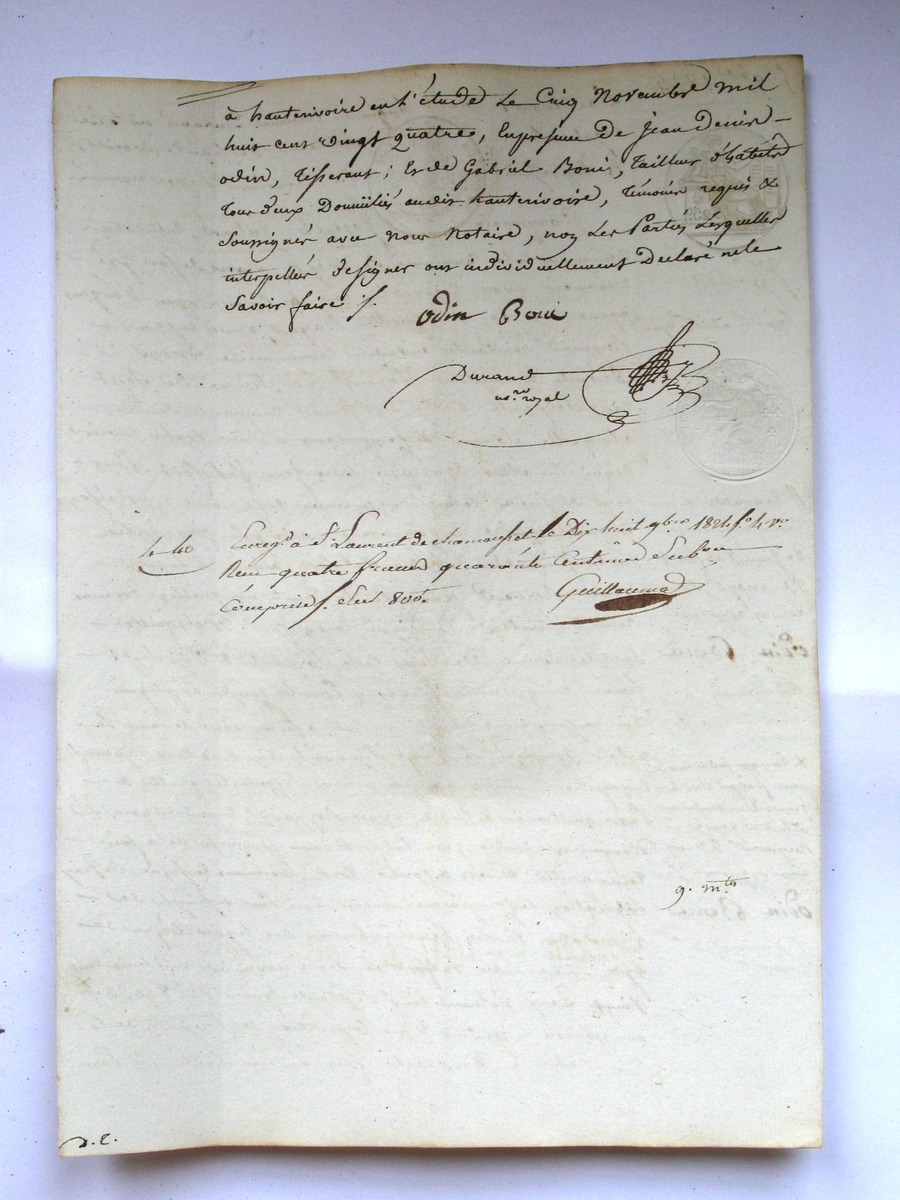 à hauterivoire en l'étude Le Cinq Novembre mil
huit cent vingt quatre, En presence De Jean Denis
odin, Tisserant ; Et de Gabriel Boni, Tailleur d'habits
Tous deux Domiciliés audit hauterivoire, Témoins requis &
Soussignés avec Nous Notaire, non Les Parties Lesquelles
interpellés de signer ont individuellement Declaré ne le
Savoir faire /.
Odin Boni
Durand
no.re royal
4 40 Enreg.é à S.t Laurent de chamousset le Dix huit 9bre 1824 f.o 4 v.o
Reçu quatre francs quarante Centimes
Comprise /. Sur 800.f
Guillaumard
9. m.tes